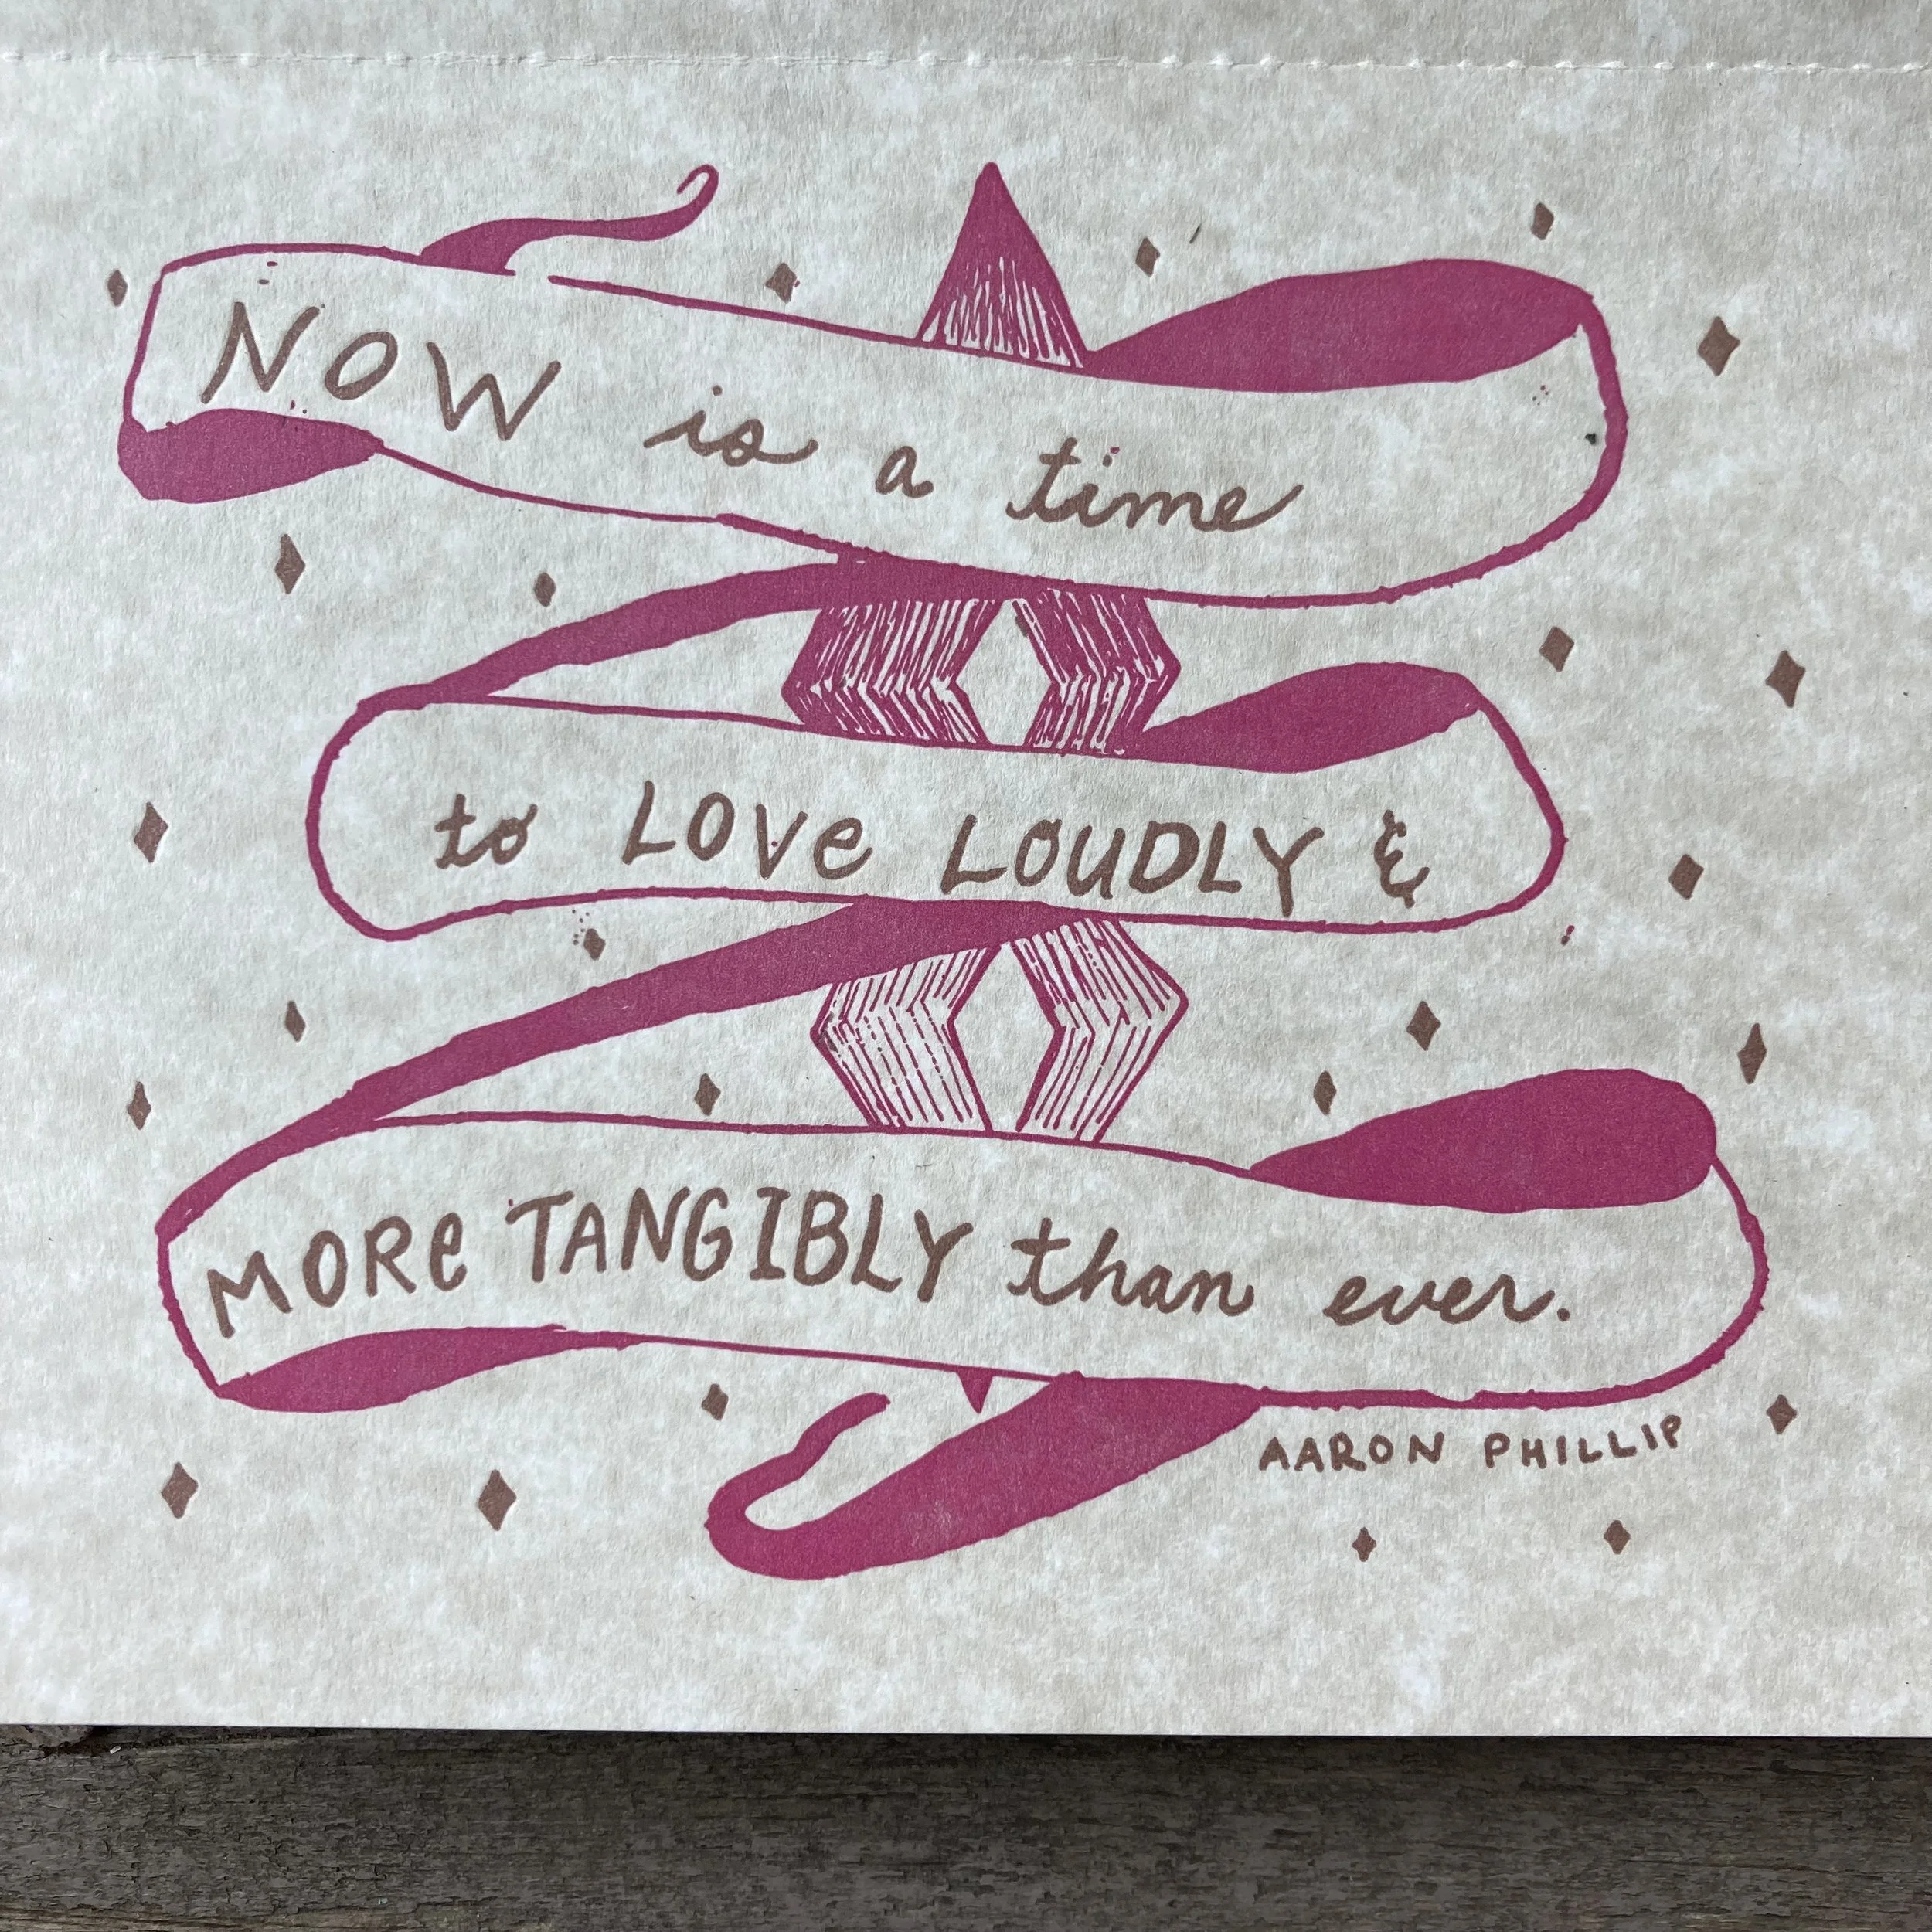 NOW is a time
to LOVe LOUDLY &
MORe TANGIBLY than ever.
AARON PHILLIP